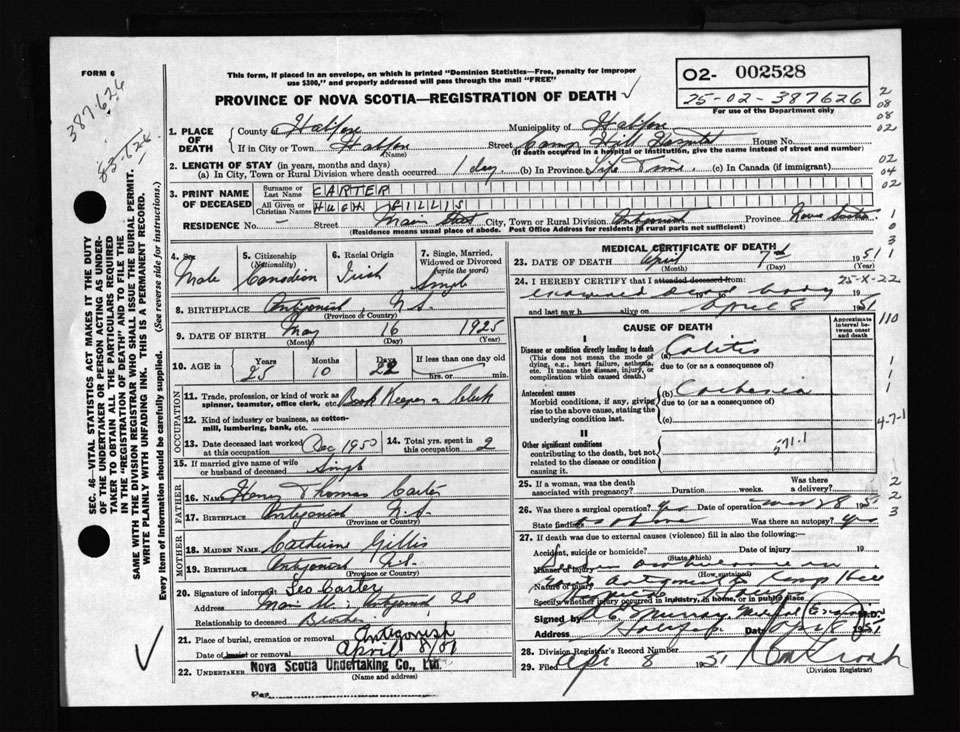 FORM 6
387.626
This form, if placed in an envelope, on which is printed "Dominion Statistics—Free, penalty for improper
use $300," and properly addressed will pass through the mail "FREE"
O2- 002528
25-02-387626
For use of the Department only
PROVINCE OF NOVA SCOTIA—REGISTRATION OF DEATH
1. PLACE OF DEATH
County of Halifax Municipality of Halifax
If in City or Town Halifax (Name) Street Camp Hill Hospital House No.
(If death occurred in a hospital or institution, give the name instead of street and number)
2. LENGTH OF STAY (in years, months and days)
(a) In City, Town or Rural Division where death occurred 1 day (b) In Province Life Time (c) In Canada (if immigrant)
3. PRINT NAME OF DECEASED
Surname or Last Name CARTER
All Given or Christian Names HUGH GILLIS
RESIDENCE No. Street Main Street City, Town or Rural Division Antigonish Province Nova Scotia
(Residence means usual place of abode. Post Office Address for residents in rural parts not sufficient)
4. Sex Male
5. Citizenship (Nationality) Canadian
6. Racial Origin Irish
7. Single, Married, Widowed or Divorced (write the word) Single
8. BIRTHPLACE Antigonish N.S.
(Province or Country)
9. DATE OF BIRTH May 16 1925
(Month) (Day) (Year)
10. AGE in Years 25 Months 10 Days 22 If less than one day old hrs. or min.
OCCUPATION
11. Trade, profession, or kind of work as spinner, teamster, office clerk, etc. Book Keeper & Clerk
12. Kind of industry or business, as cotton-mill, lumbering, bank, etc.
13. Date deceased last worked at this occupation Dec 1950
14. Total yrs. spent in this occupation 2
15. If married give name of wife or husband of deceased Single
FATHER
16. NAME Henry Thomas Carter
17. BIRTHPLACE Antigonish N.S.
(Province or Country)
MOTHER
18. MAIDEN NAME Catherine Gillis
19. BIRTHPLACE Antigonish N.S.
(Province or Country)
20. Signature of informant Leo Carter
Address Main St., Antigonish
Relationship to deceased Brother
21. Place of burial, cremation or removal Antigonish
Date of burial or removal April 8/51
22. UNDERTAKER Nova Scotia Undertaking Co., Ltd.
(Name and address)
MEDICAL CERTIFICATE OF DEATH
23. DATE OF DEATH April 7th 1951
(Month) (Day) (Year)
24. I HEREBY CERTIFY that I attended deceased from: 25-X-22
body
and last saw h alive on April 8 1951
CAUSE OF DEATH
Approximate interval between onset and death
I
Disease or condition directly leading to death
(This does not mean the mode of dying, e.g., heart failure, asthenia, etc. It means the disease, injury, or complication which caused death.)
(a) Colitis
due to (or as a consequence of)
Antecedent causes
Morbid conditions, if any, giving rise to the above cause, stating the underlying condition last.
(b) Cachexia
due to (or as a consequence of)
(c)
II
Other significant conditions
contributing to the death, but not related to the disease or condition causing it.
571.1
25. If a woman, was the death associated with pregnancy? Duration weeks. Was there a delivery?
26. Was there surgical operation? Yes Date of operation 28 1951
State findings as above Was there an autopsy? Yes
27. If death was due to external causes (violence) fill in also the following:—
Accident, suicide or homicide? (State which) Date of injury 19
(How sustained)
Nature of injury
Specify whether injury occurred in industry, in home, or in public place
Signed by Murray, Medical Examiner M.D.
Address Halifax Date April 8 1951
28. Division Registrar's Record Number
29. Filed Apr 8 1951
(Division Registrar)
SEC. 46—VITAL STATISTICS ACT MAKES IT THE DUTY
OF THE UNDERTAKER OR PERSON ACTING AS UNDER-
TAKER TO OBTAIN ALL THE PARTICULARS REQUIRED
IN THE "REGISTRATION OF DEATH" AND TO FILE THE
SAME WITH THE DIVISION REGISTRAR WHO SHALL ISSUE THE BURIAL PERMIT.
WRITE PLAINLY WITH UNFADING INK. THIS IS A PERMANENT RECORD.
Every item of information should be carefully supplied. (See reverse side for instructions.)